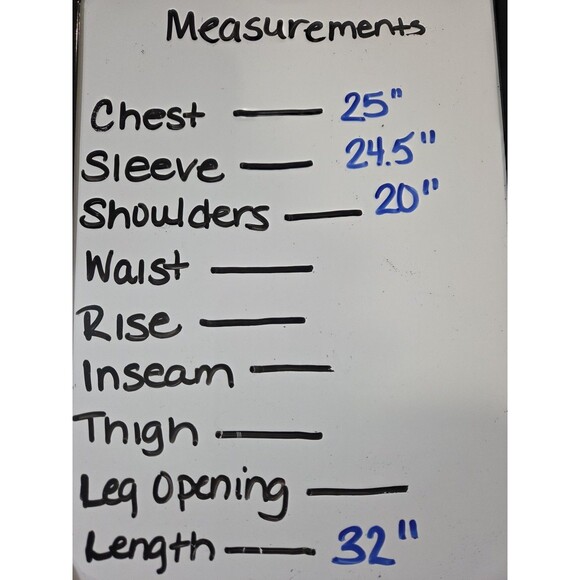 Measurements
Chest — 25"
Sleeve — 24.5"
Shoulders — 20"
Waist —
Rise —
Inseam —
Thigh —
Leg Opening —
Length — 32"